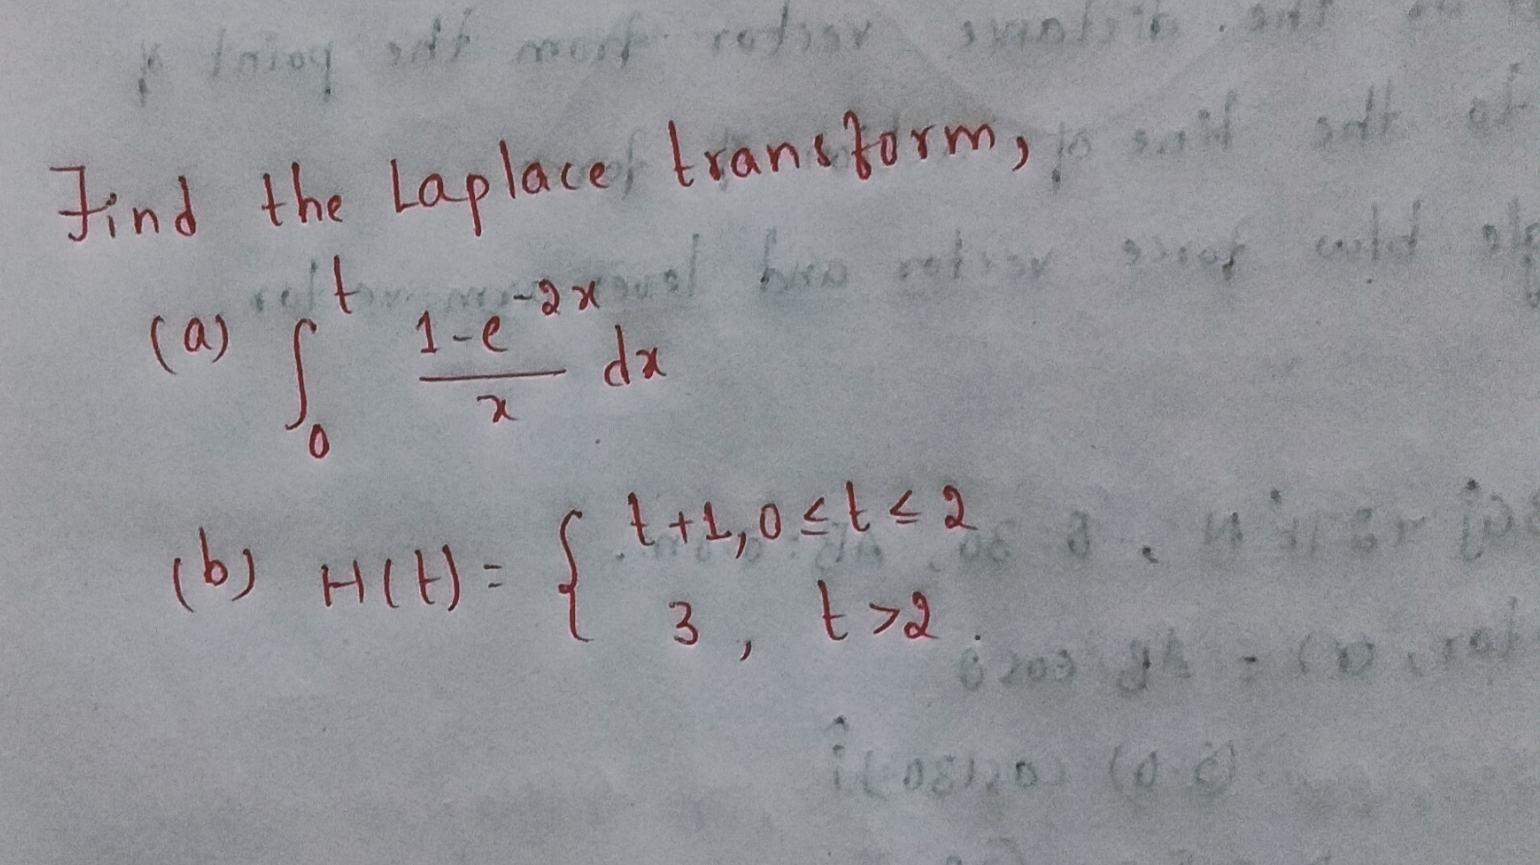 Find the Laplace transform,
(a) ∫₀ᵗ (1-e^(-2x))/x dx
(b) H(t) = { t+1, 0 ≤ t ≤ 2
3, t > 2.